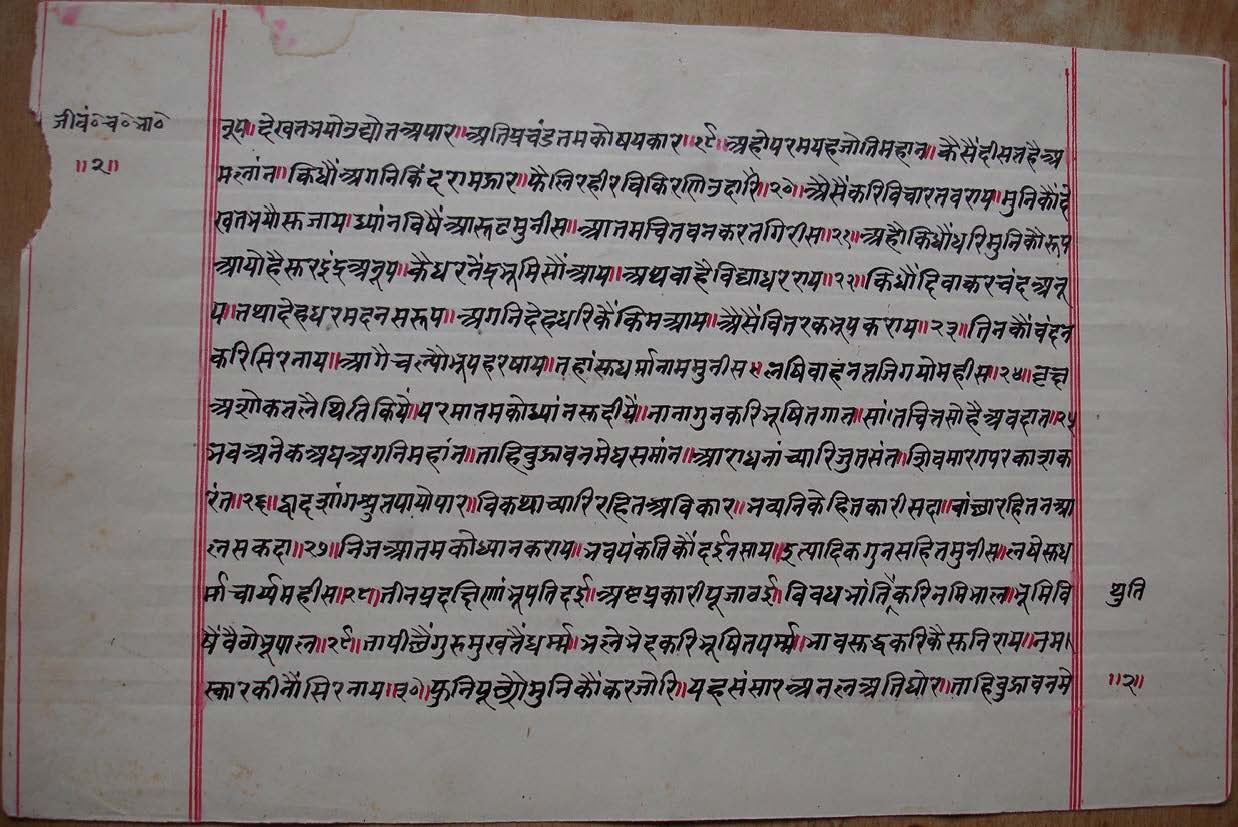 जीवं०च०भा०
॥२॥
नूप॥देखतभयोउद्योतअपार॥अतिप्रचंडतमकोषयकार॥१९॥अहोपरमयहजोतिमहान॥कैसैंदीसतहैअ
मलांन॥किधौंअगनिकिंदरामझार॥फैलिरहीरविकिरणिउदारि॥२०॥अैसैंकरिविचारतवराय॥मुनिकौंदे
खतभयौसुजाय॥ध्यांनविषैंआरूढमुनीस॥आतमचितवनकरतगिरीस॥२१॥अहौकिधौंधरिमुनिकौरूप
आयोहैसुरइंदअनूप॥कैधरनेंद्रभूमिसौंआय॥अथवाहैविद्याधरराय॥२२॥किधौंदिवाकरचंदअनू
प॥तथादेहधरमदनसरूप॥अगनिदेहधरिकैंकिमआय॥अैसैंवितरकभूपकराय॥२३॥तिनकौंवंदन
करिसिरनाय॥आगैचल्यौभूपहरषाय॥तहांसुधर्मानाममुनीस॥लषिवाहनतजिगयोमहीस॥२४॥वृछ
अशोकतलैथितिकियें॥परमातमकोध्यांनसुदीयें॥नानागुनकरिभूषितगात॥सांतचित्तसोहैअवदात॥२५
भवअनेकअघअगनिमहांन॥ताहिवुझावनमेघसमांन॥आराधनांच्यारिजुतसंत॥शिवमारगपरकाशक
रंत॥२६॥द्वादशांगश्रुतपायोपार॥विकथाच्यारिरहितअविकार॥भव्यनिकेहितकारीसदा॥वांछारहितनआ
लसकदा॥२७॥निजआतमकोध्यानकराय॥भवयंकतिकौंदर्ईनसाय॥इत्यादिकगुनसहितमुनीस॥लषेसुध
र्माचार्य्यमहीस॥२८॥तीनप्रदक्षिणांभूपतिदई॥अष्टप्रकारीपूजावई॥विवधभांतिथुतिकरिनमिभाल॥भूमिवि
थुति
षैंवैठोभूपाल॥२९॥तापीछैंगुरुमुखतैंधर्म्म॥भलेभेदकरिभूषितपर्म्म॥भावसुद्धकरिकैसुनिराय॥नम।
स्कारकीनौंसिरनाय॥३०॥फुनिपूछ्योमुनिकौंकरजोरि॥यहसंसारअनलअतिघोर॥ताहिवुझावनमे
॥२॥